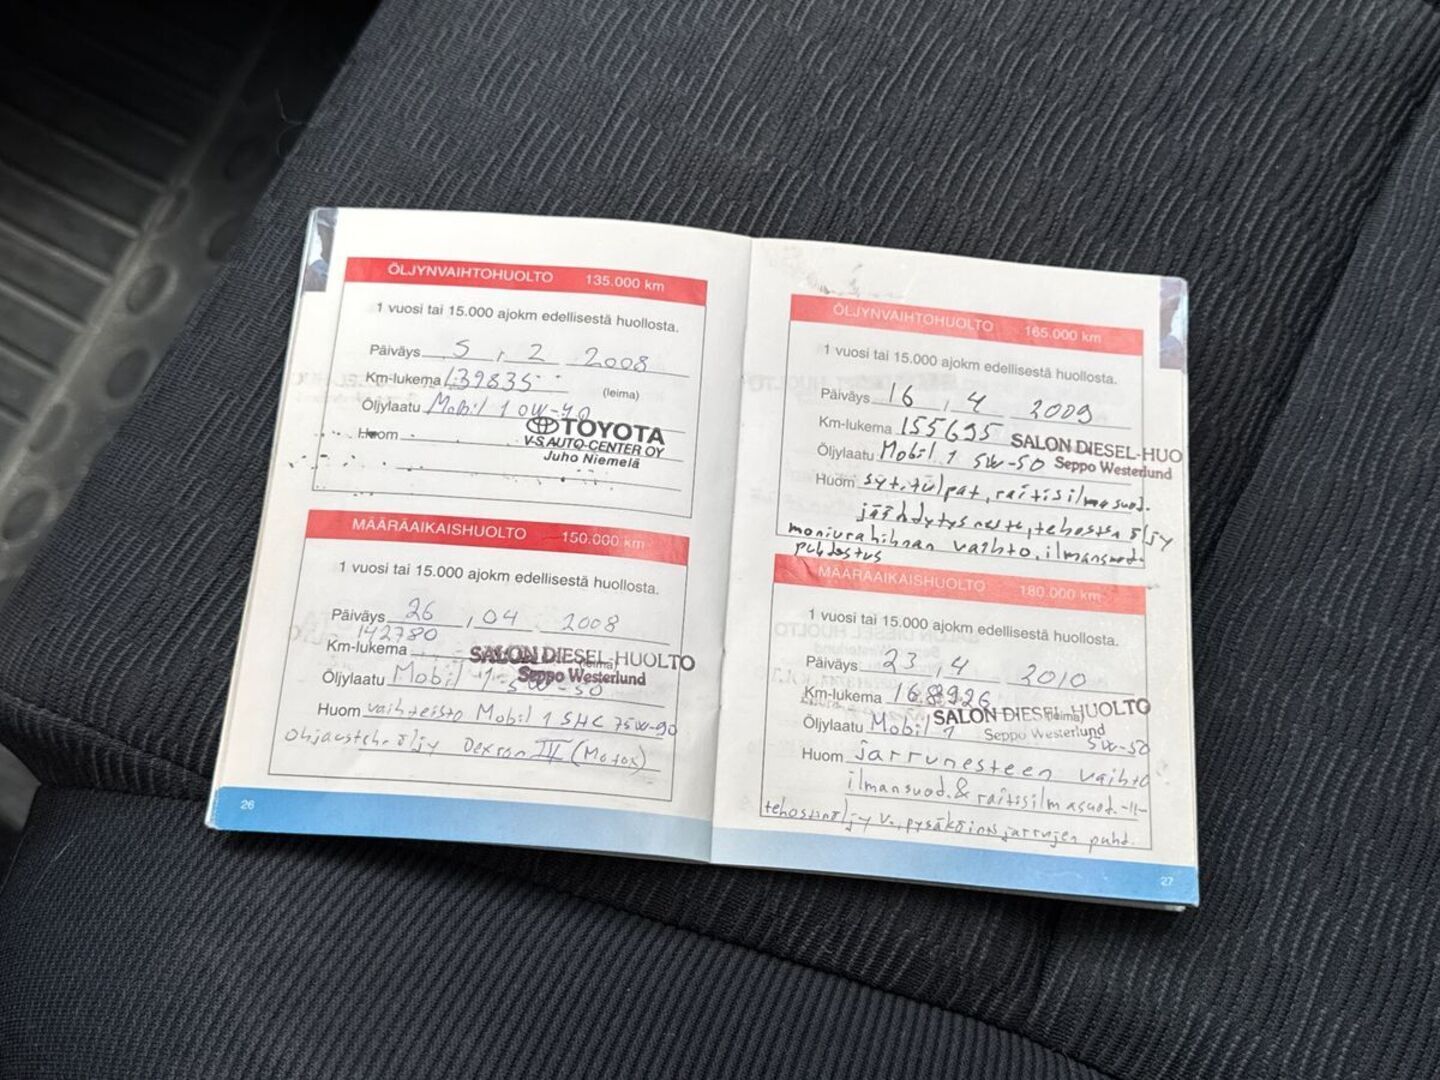 ÖLJYNVAIHTOHUOLTO 135.000 km
1 vuosi tai 15.000 ajokm edellisestä huollosta.
Päiväys 5 , 2 2008
Km-lukema 139835
(leima)
Öljylaatu Mobil 1 0W-40
TOYOTA
V-S AUTO-CENTER OY
Juho Niemelä
Huom
MÄÄRÄAIKAISHUOLTO 150.000 km
1 vuosi tai 15.000 ajokm edellisestä huollosta.
Päiväys 26 , 04 2008
142780
Km-lukema
(leima)
SALON DIESEL-HUOLTO
Seppo Westerlund
Öljylaatu Mobil 1 5W-50
Huom vaihteisto Mobil 1 SHC 75W-90
Dexron IV (Motox)
26
ÖLJYNVAIHTOHUOLTO 165.000 km
1 vuosi tai 15.000 ajokm edellisestä huollosta.
Päiväys 16 , 4 2009
Km-lukema 155695
SALON DIESEL-HUO
Seppo Westerlund
Öljylaatu Mobil 1 5W-50
Huom syt.tulpat, raitisilmasuod.
jäähdytysneste, tehostin öljy
moniurahihnan vaihto, ilmansuod.
puhdistus
MÄÄRÄAIKAISHUOLTO 180.000 km
1 vuosi tai 15.000 ajokm edellisestä huollosta.
Päiväys 23 , 4 2010
Km-lukema 168926
SALON DIESEL-HUOLTO
(leima)
Seppo Westerlund
Öljylaatu Mobil 1 5W-50
Huom jarrunesteen vaihto
ilmansuod. & raitisilmasuod. -11-
tehostinöljy v., pysäköintijarrujen puhd.
27